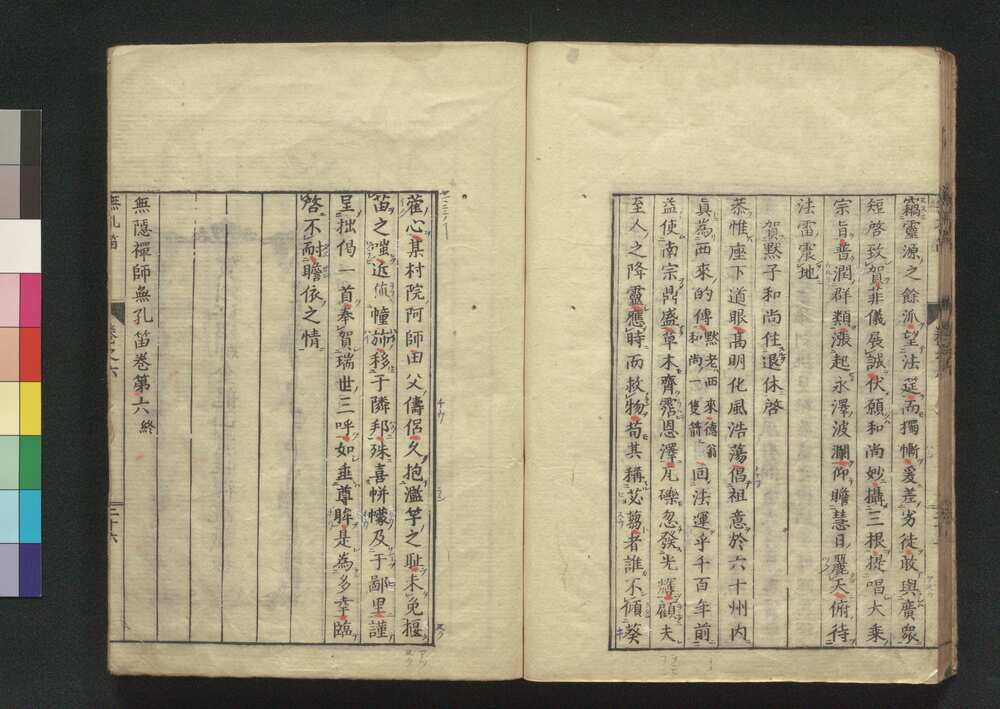 竊靈源之餘派望法筵而獨慚爰差劣徒敢與廣衆
短啓致賀菲儀展誠伏願和尚妙攝三根提唱大乘
宗旨普潤群類漲起永澤波瀾仰瞻慧日麗天俯待
法雷震地
賀默子和尚住退休啓
恭惟座下道眼高明化風浩蕩倡祖意於六十州内
真為西來的傳默老西來德翁和尚一隻箭回法運乎千百年前
益使南宗鼎盛草木齊霑恩澤瓦礫忽發光輝顧夫
至人之降靈應時而救物苟其稱苾蒭者誰不傾葵
藿心某村院阿師田父儔侶久抱濫竽之恥未免榲
苗之嗤近瓻幢旆移于隣邦殊喜帡幪及于鄙里謹
呈拙偈一首奉賀瑞世三呼如垂尊眸是為多幸臨
啓不耐瞻依之情
無隱禪師無孔笛巻第六終
無孔笛
巻之六
三十六